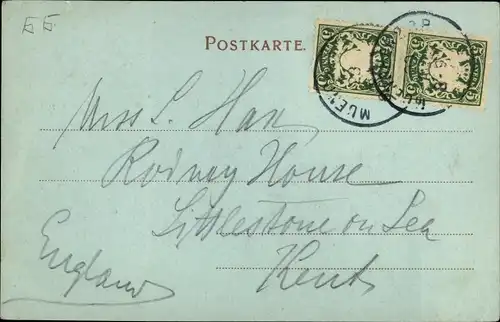 POSTKARTE.
Miss L. Hax
Rodney House
Littlestone on Sea
Kent
England